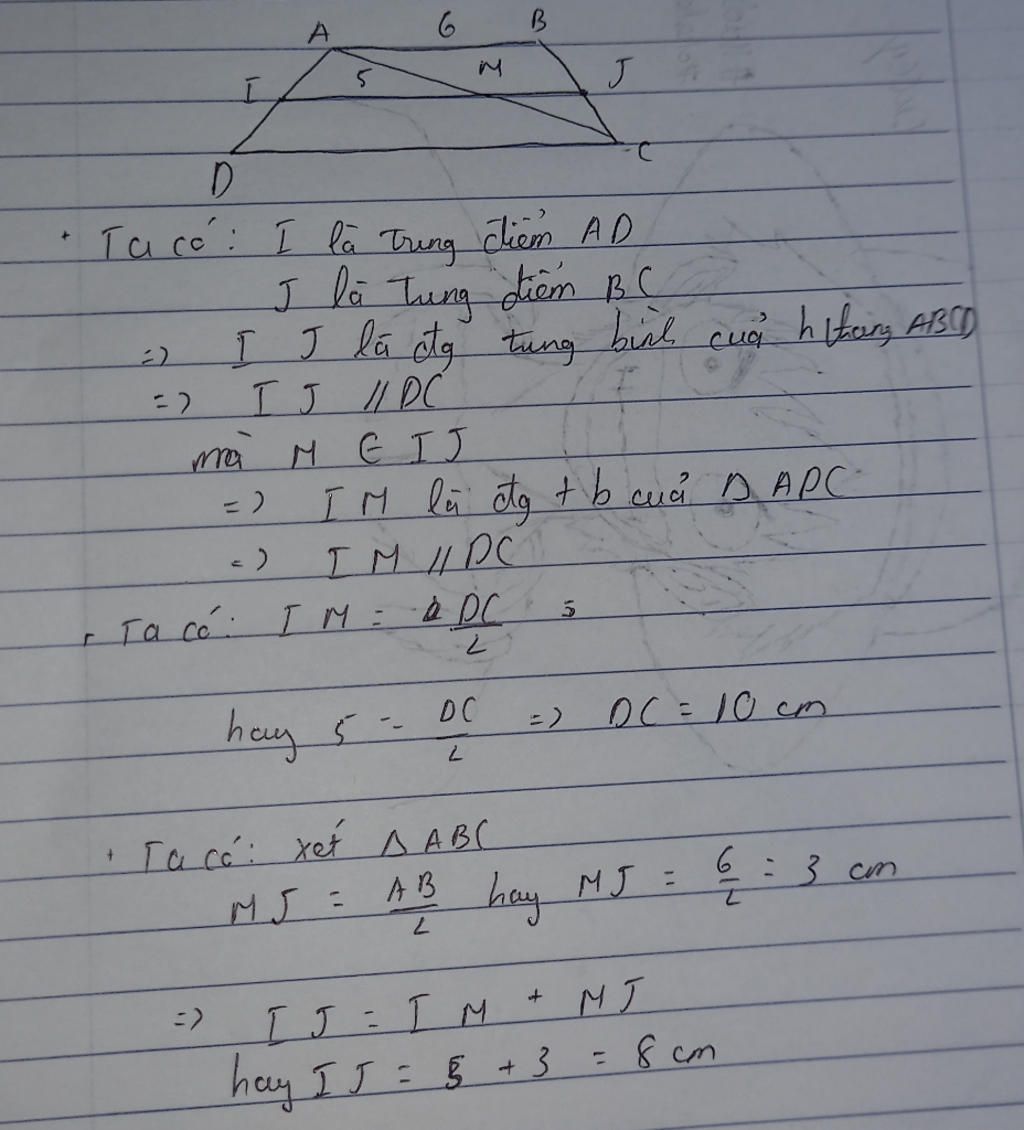 A 6 B
I 5 M J
D C
+ Ta có: I là trung điểm AD
J là trung điểm BC
=> I J là đg trung bình cuả hthang ABCD
=> I J // DC
mà M ∈ I J
=> I M là đg t b cuả Δ ADC
=> I M // DC
+ Ta có: I M = DC/2 =
hay 5 = DC/2 => DC = 10 cm
+ Ta có: xét Δ ABC
MJ = AB/2 hay MJ = 6/2 = 3 cm
=> I J = I M + MJ
hay I J = 5 + 3 = 8 cm